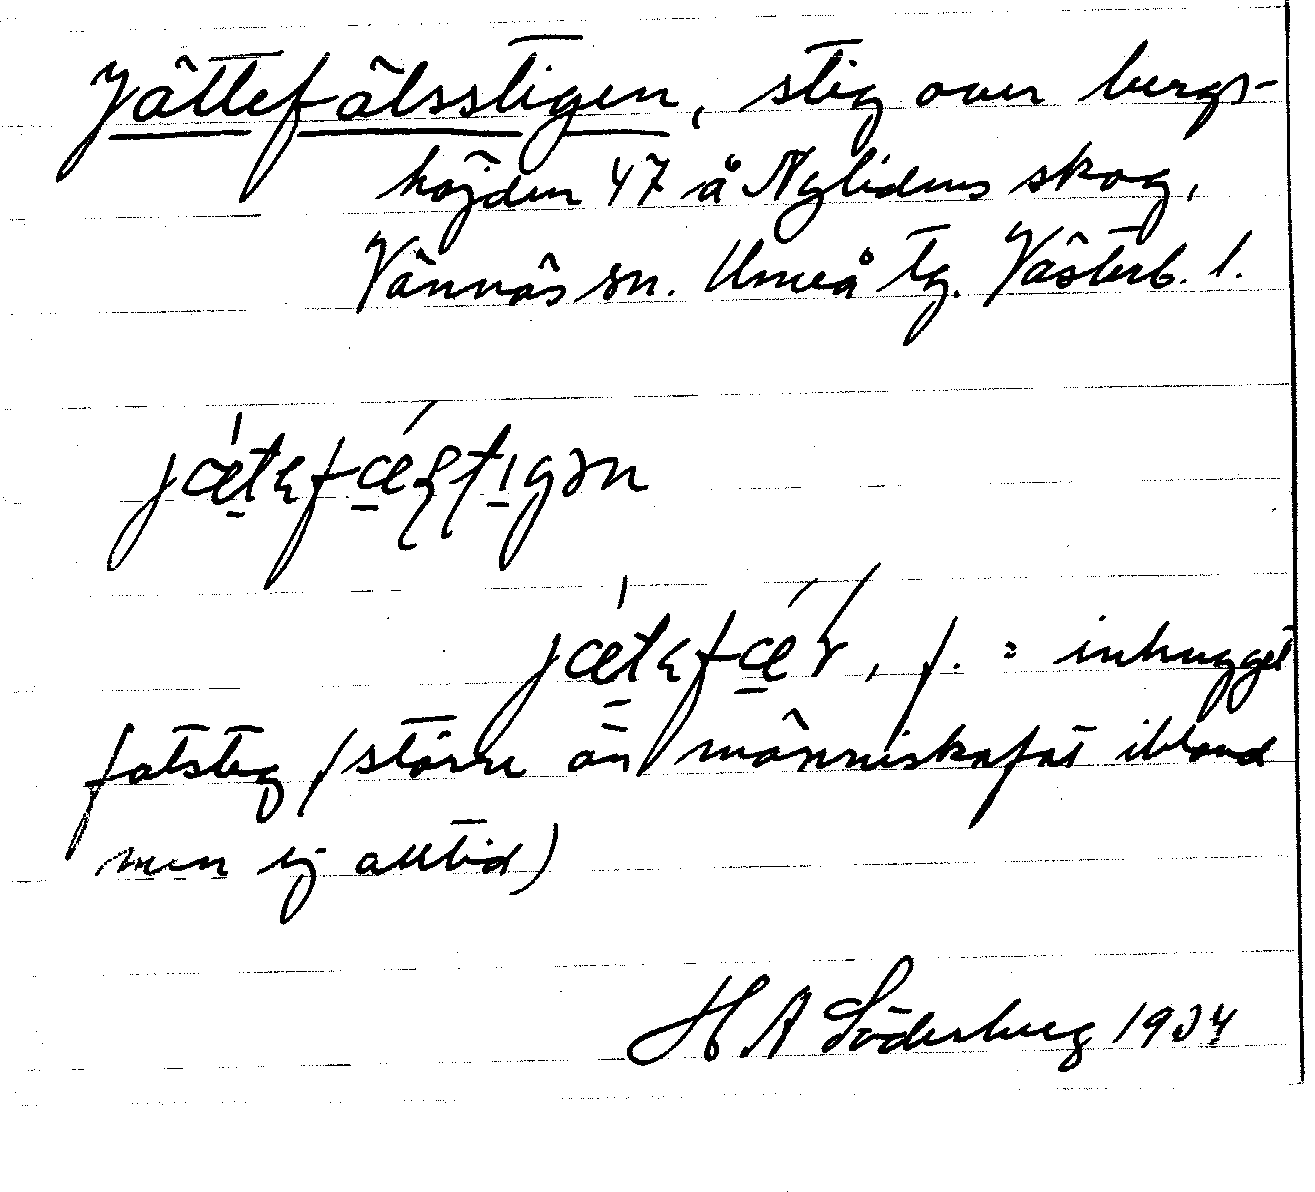 Jättefälsstigen, stig över bergs-
höjden 47 å Nylidens skog,
Vännäs sn. Umeå tg. Västerb. l.
f. = inhugget
fotsteg (större än människofot ibland
men ej alltid)
H A Söderberg 1934